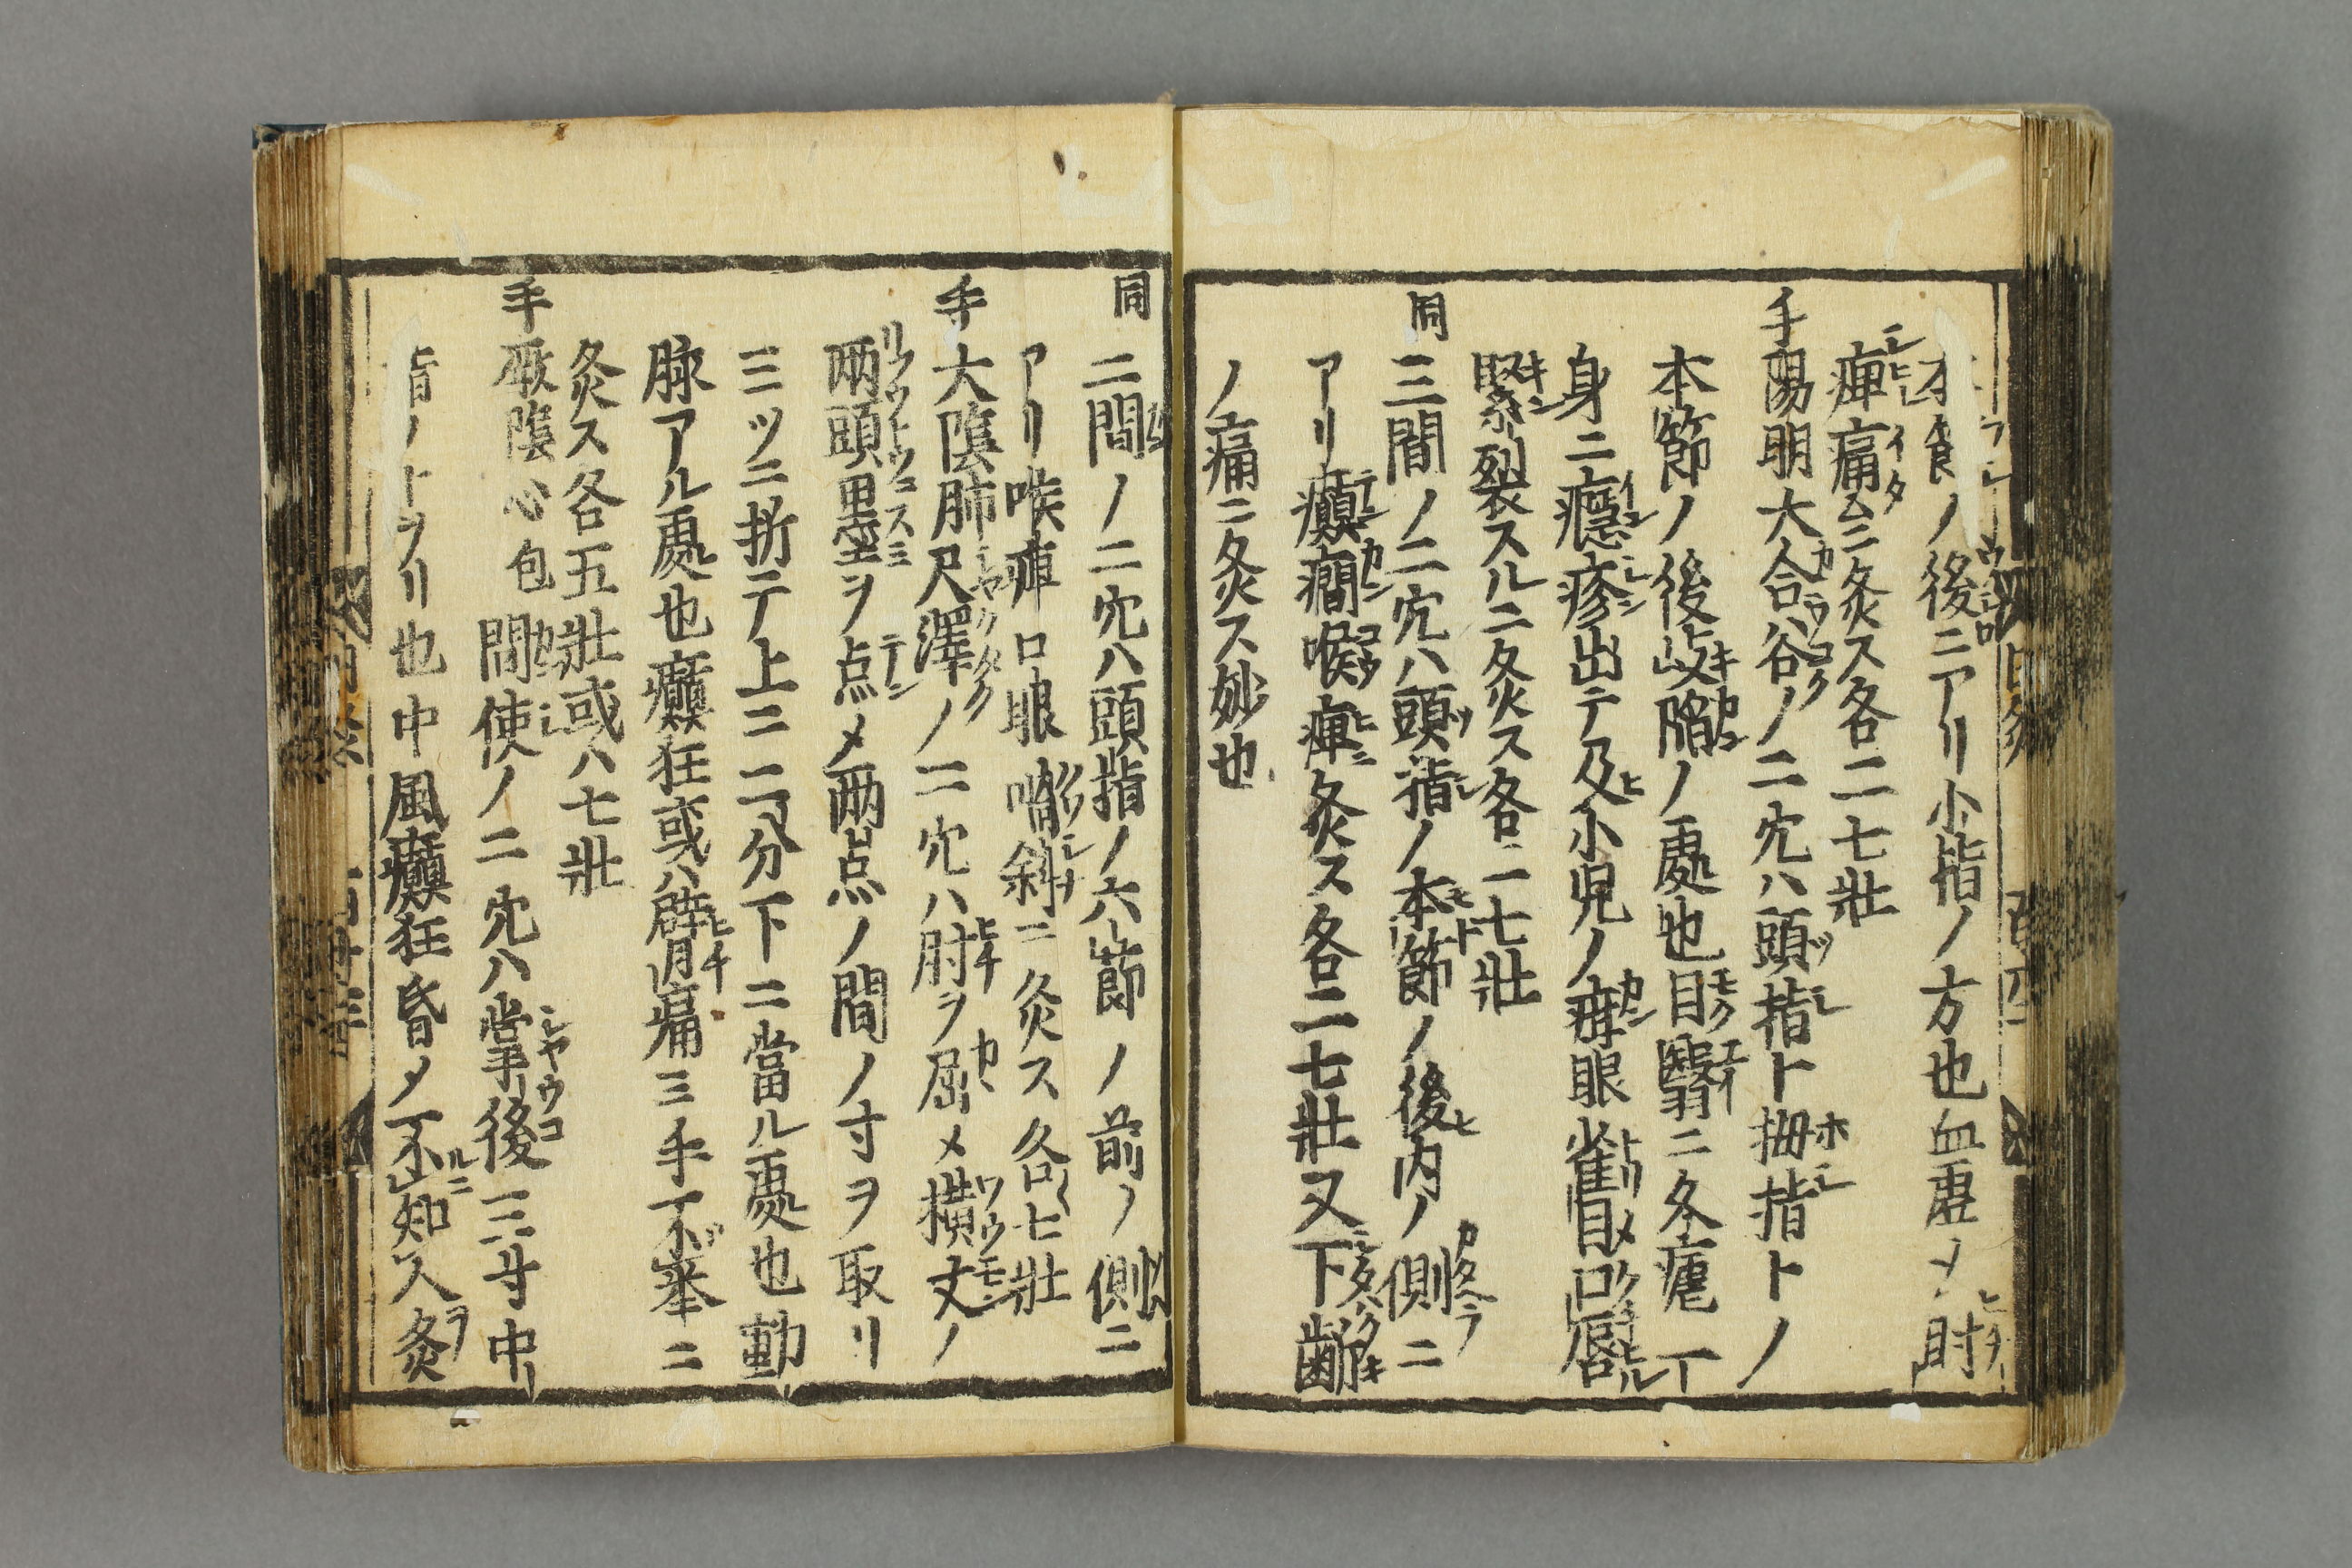 節ノ後ニアリ小指ノ方也血虚メ肘
痺痛ニ灸ス各二七壯
手陽明大合谷ノ二穴ハ頭指ト拇指トノ
本節ノ後歧𨻶ノ處也目翳ニ久瘧丁
身ニ癮疹出テ及小兒ノ疳眼雀目口唇
緊裂スルニ灸ス各一七壯
同三間ノ二穴ハ頭指ノ本節ノ後内ノ側ニ
アリ癲癇喉痺灸ス各二七壯又下齒
ノ痛ニ灸ス妙也
同二間ノ二穴ハ頭指ノ六節ノ前ノ側ニ
アリ喉痺口眼喎斜ニ灸ス各七壯
手大陰肺尺澤ノ二穴ハ肘ヲ屈メ横丈ノ
兩頭墨ヲ点メ兩点ノ間ノ寸ヲ取リ
三ツニ折テ上ニ二分下ニ當ル處也動
脉アル處也癲狂或ハ臂痛ミ手不举ニ
灸ス各五壯或ハ七壯
手厥陰心包間使ノ二穴ハ掌後三寸中
指ノトヲリ也中風癲狂昏メ不知人灸